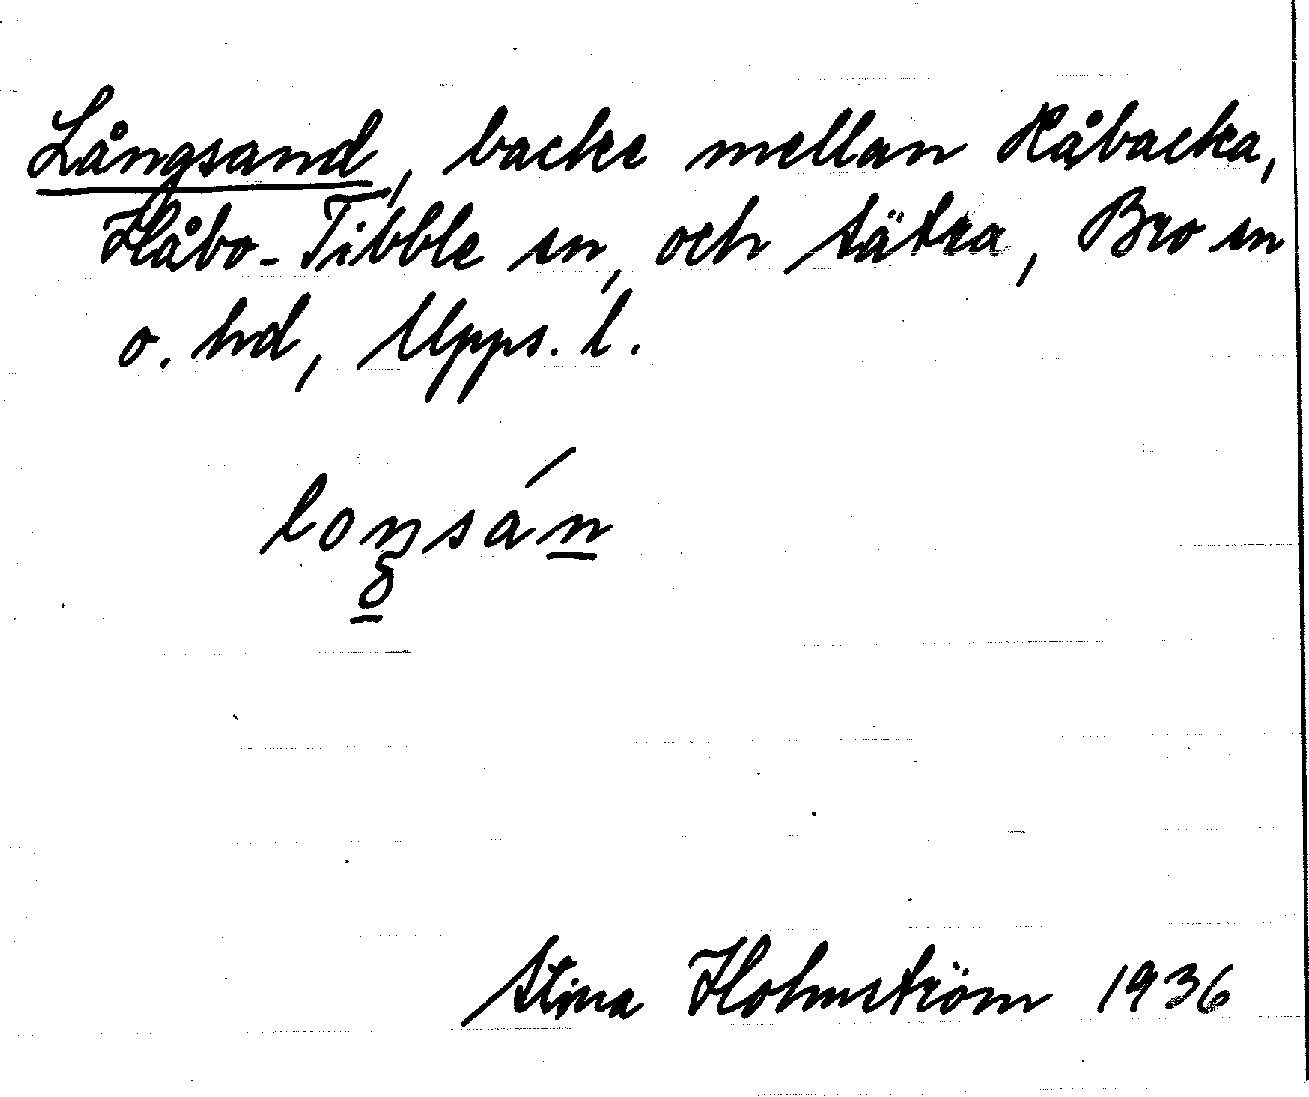 Långsand, backe mellan Råbacka,
Håbo-Tibble sn, och Sätra, Bro sn
o. hd, Upps. l.
Stina Holmström 1936